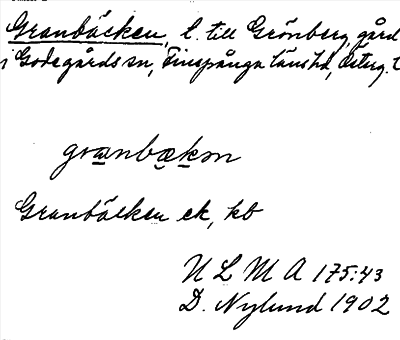 Granbäcken, l. till Grönberg, gård
i Godegårds sn, Finspånga läns hd, Österg. l
granbækən
Granbäcken ek, kb
U L M A 175:43
D. Nylund 1902